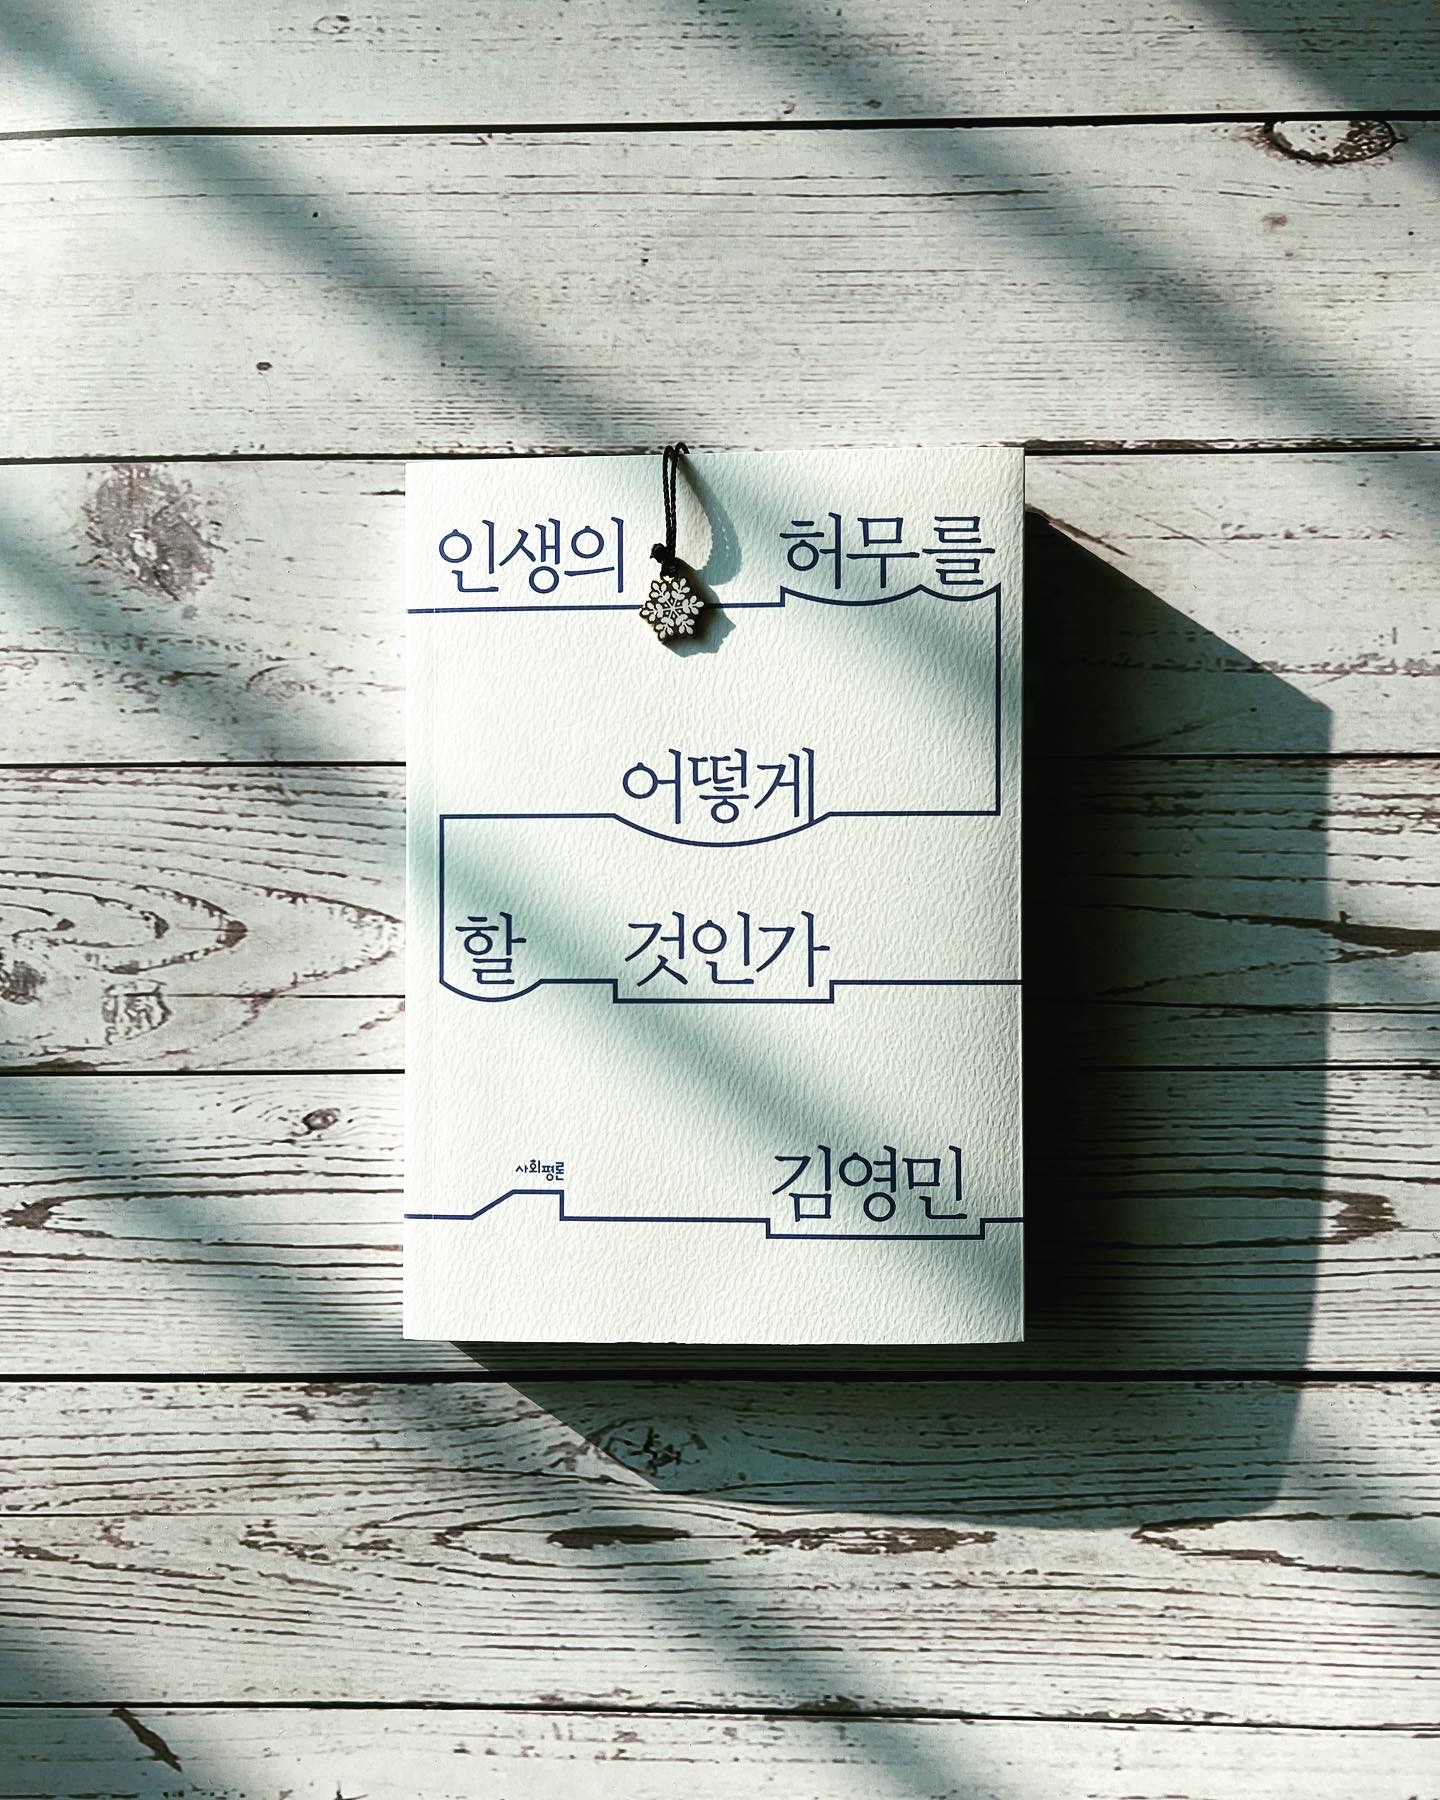 인생의 허무를
어떻게
할 것인가
사회평론
김영민